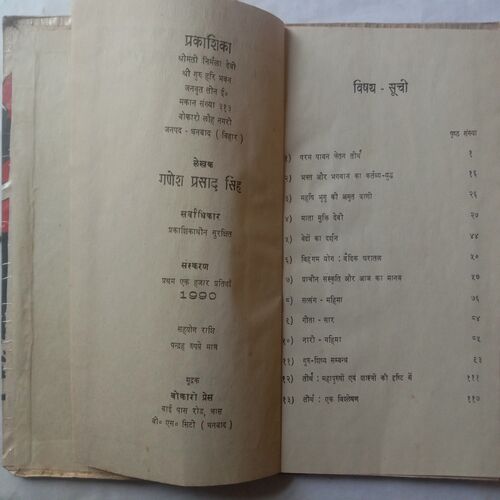 प्रकाशिका
श्रीमती निर्मला देवी
श्री गुरु हरि भवन
जनवृत तीन ई०
मकान संख्या ३१३
बोकारो लौह नगरी
जनपद - धनबाद ( बिहार )
लेखक
गणेश प्रसाद सिंह
सर्वाधिकार
प्रकाशिकाधीन सुरक्षित
संस्करण
प्रथम एक हजार प्रतियाँ
1990
सहयोग राशि
पन्द्रह रुपये मात्र
मुद्रक
बोकारो प्रेस
बाई पास रोड, चास
बी० एस० सिटी ( धनबाद )
विषय - सूची
पृष्ठ संख्या
१) परम पावन चेतन तीर्थ १
२) भक्त और भगवान का कर्तव्य-युद्ध १६
३) महर्षि भृगु की अमृत वाणी २६
४) माता मुक्ति देवी ४४
५) वेदों का दर्शन ४४
६) विहंगम योग : वैदिक धरातल ५०
७) प्राचीन संस्कृति और आज का मानव ५७
८) सत्संग - महिमा ७५
९) गीता - सार ८४
१०) नारी - महिमा ८४
११) गुरु-शिष्य सम्बन्ध ९३
१२) तीर्थ : महापुरुषों एवं शास्त्रों की दृष्टि में १११
१३) तीर्थ : एक विश्लेषण ११७